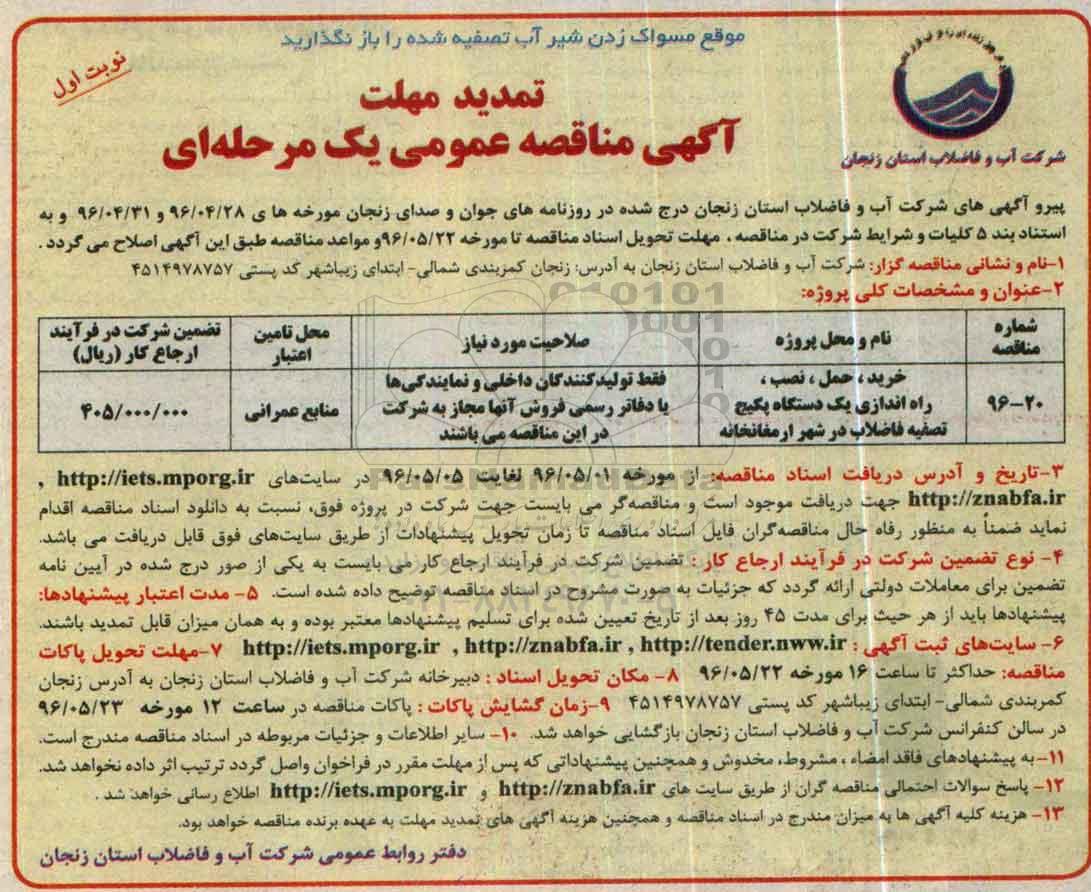 موقع مسواک زدن شیر آب تصفیه شده را باز نگذارید
نوبت اول
تمدید مهلت
آگهی مناقصه عمومی یک مرحله‌ای
شرکت آب و فاضلاب استان زنجان
پیرو آگهی های شرکت آب و فاضلاب استان زنجان درج شده در روزنامه های جوان و صدای زنجان مورخه ها ی ۹۶/۰۴/۲۸ و ۹۶/۰۴/۳۱ و به
استناد بند ۵ کلیات و شرایط شرکت در مناقصه ، مهلت تحویل اسناد مناقصه تا مورخه ۹۶/۰۵/۲۲و مواعد مناقصه طبق این آگهی اصلاح می گردد .
۱-نام و نشانی مناقصه گزار: شرکت آب و فاضلاب استان زنجان به آدرس: زنجان کمربندی شمالی- ابتدای زیباشهر کد پستی ۴۵۱۴۹۷۸۷۵۷
۲-عنوان و مشخصات کلی پروژه:
شماره مناقصه | نام و محل پروژه | صلاحیت مورد نیاز | محل تامین اعتبار | تضمین شرکت در فرآیند ارجاع کار (ریال)
۹۶-۲۰ | خرید ، حمل ، نصب ، راه اندازی یک دستگاه پکیج تصفیه فاضلاب در شهر ارمغانخانه | فقط تولیدکنندگان داخلی و نمایندگی‌ها یا دفاتر رسمی فروش آنها مجاز به شرکت در این مناقصه می باشند | منابع عمرانی | ۴۰۵/۰۰۰/۰۰۰
۳-تاریخ و آدرس دریافت اسناد مناقصه: از مورخه ۹۶/۰۵/۰۱ لغایت ۹۶/۰۵/۰۵ در سایت‌های http://iets.mporg.ir ,
http://znabfa.ir جهت دریافت موجود است و مناقصه‌گر می بایست جهت شرکت در پروژه فوق، نسبت به دانلود اسناد مناقصه اقدام
نماید ضمناً به منظور رفاه حال مناقصه‌گران فایل اسناد مناقصه تا زمان تحویل پیشنهادات از طریق سایت‌های فوق قابل دریافت می باشد.
۴- نوع تضمین شرکت در فرآیند ارجاع کار : تضمین شرکت در فرآیند ارجاع کار می بایست به یکی از صور درج شده در آیین نامه
تضمین برای معاملات دولتی ارائه گردد که جزئیات به صورت مشروح در اسناد مناقصه توضیح داده شده است. ۵- مدت اعتبار پیشنهادها:
پیشنهادها باید از هر حیث برای مدت ۴۵ روز بعد از تاریخ تعیین شده برای تسلیم پیشنهادها معتبر بوده و به همان میزان قابل تمدید باشند.
۶- سایت‌های ثبت آگهی : http://iets.mporg.ir , http://znabfa.ir , http://tender.nww.ir ۷-مهلت تحویل پاکات
مناقصه: حداکثر تا ساعت ۱۶ مورخه ۹۶/۰۵/۲۲ ۸- مکان تحویل اسناد : دبیرخانه شرکت آب و فاضلاب استان زنجان به آدرس زنجان
کمربندی شمالی- ابتدای زیباشهر کد پستی ۴۵۱۴۹۷۸۷۵۷ ۹-زمان گشایش پاکات : پاکات مناقصه در ساعت ۱۲ مورخه ۹۶/۰۵/۲۳
در سالن کنفرانس شرکت آب و فاضلاب استان زنجان بازگشایی خواهد شد. ۱۰- سایر اطلاعات و جزئیات مربوطه در اسناد مناقصه مندرج است.
۱۱-به پیشنهادهای فاقد امضاء ، مشروط، مخدوش و همچنین پیشنهاداتی که پس از مهلت مقرر در فراخوان واصل گردد ترتیب اثر داده نخواهد شد.
۱۲- پاسخ سوالات احتمالی مناقصه گران از طریق سایت های http://znabfa.ir و http://iets.mporg.ir اطلاع رسانی خواهد شد .
۱۳- هزینه کلیه آگهی ها به میزان مندرج در اسناد مناقصه و همچنین هزینه آگهی های تمدید مهلت به عهده برنده مناقصه خواهد بود.
دفتر روابط عمومی شرکت آب و فاضلاب استان زنجان